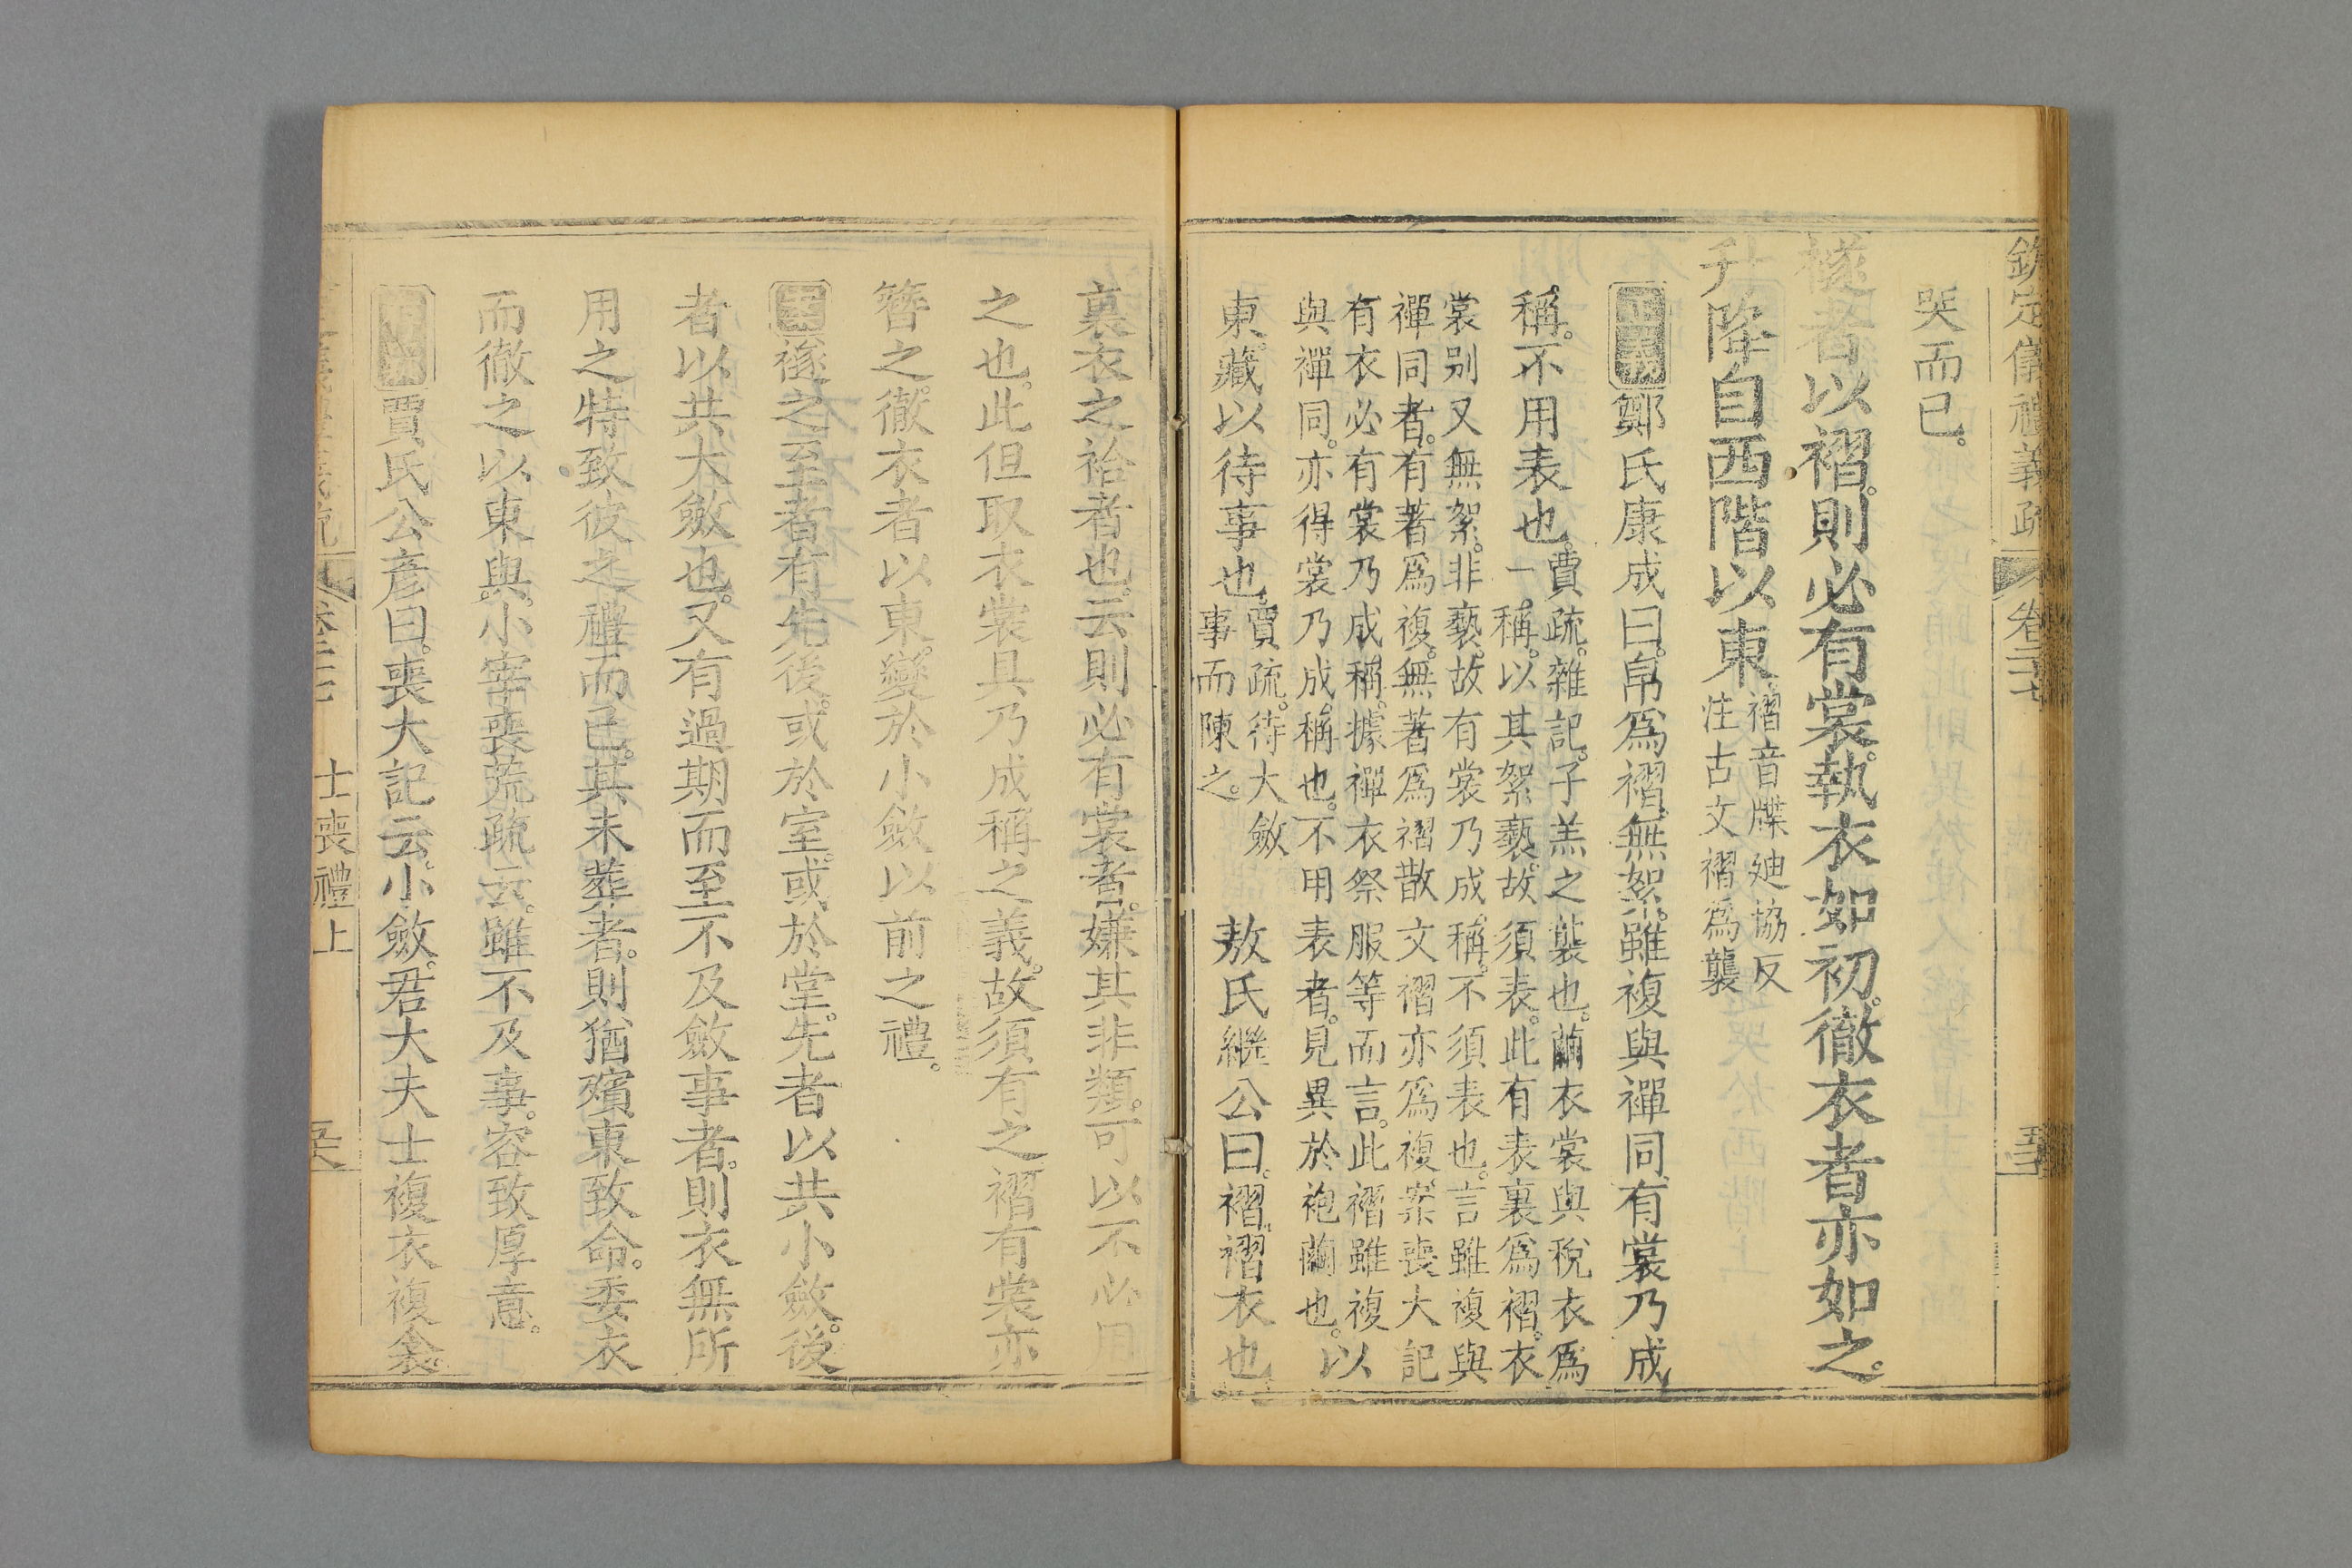 欽定儀禮義疏 卷二十七
哭而已。
襚者以褶。則必有裳。執衣如初。徹衣者亦如之。
升降自西階以東 褶音牒廸協反
注古文褶爲襲
正義 鄭氏康成曰。帛爲褶。無絮。雖複與襌同。有裳乃成
稱。不用表也。 賈疏。雜記。子羔之襲也。繭衣裳與稅衣爲
一稱。以其絮褻。故須表。此有表裏爲褶。衣
裳别又無絮。非褻。故有裳乃成稱。不須表也。言雖複與
襌同者。有著爲複。無著爲褶。散文褶亦爲複。案喪大記
有衣必有裳乃成稱。據襌衣祭服等而言。此褶雖複
與襌同。亦得裳乃成稱也。不用表者。見異於袍繭也。 以
東。藏以待事也。 賈疏。待大斂
事而陳之。 敖氏繼公曰。褶。褶衣也。
裏衣之袷者也。云則必有裳者。嫌其非類。可以不必用
之也。此但取衣裳具乃成稱之義。故須有之褶有裳亦
簪之。徹衣者以東。變於小斂以前之禮。
案 襚之至者有先後。或於室。或於堂。先者以共小斂。後
者以共大斂也。又有過期而至不及斂事者。則衣無所
用之特致彼之禮而已。其未葬者。則猶殯東致命。委衣
而徹之以東與。小宰喪荒疏云。雖不及事。容致厚意。
賈氏公彥曰。喪大記云。小斂。君大夫士複衣複衾
卷二十七 士喪禮上